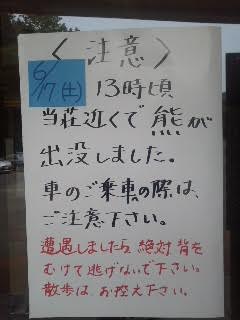 〈注意〉
6/17(土)
13時頃
当荘近くで熊が
出没しました。
車のご乗車の際は、
ご注意下さい。
遭遇しましたら絶対背を
むけて逃げないで下さい。
散歩は、お控え下さい。